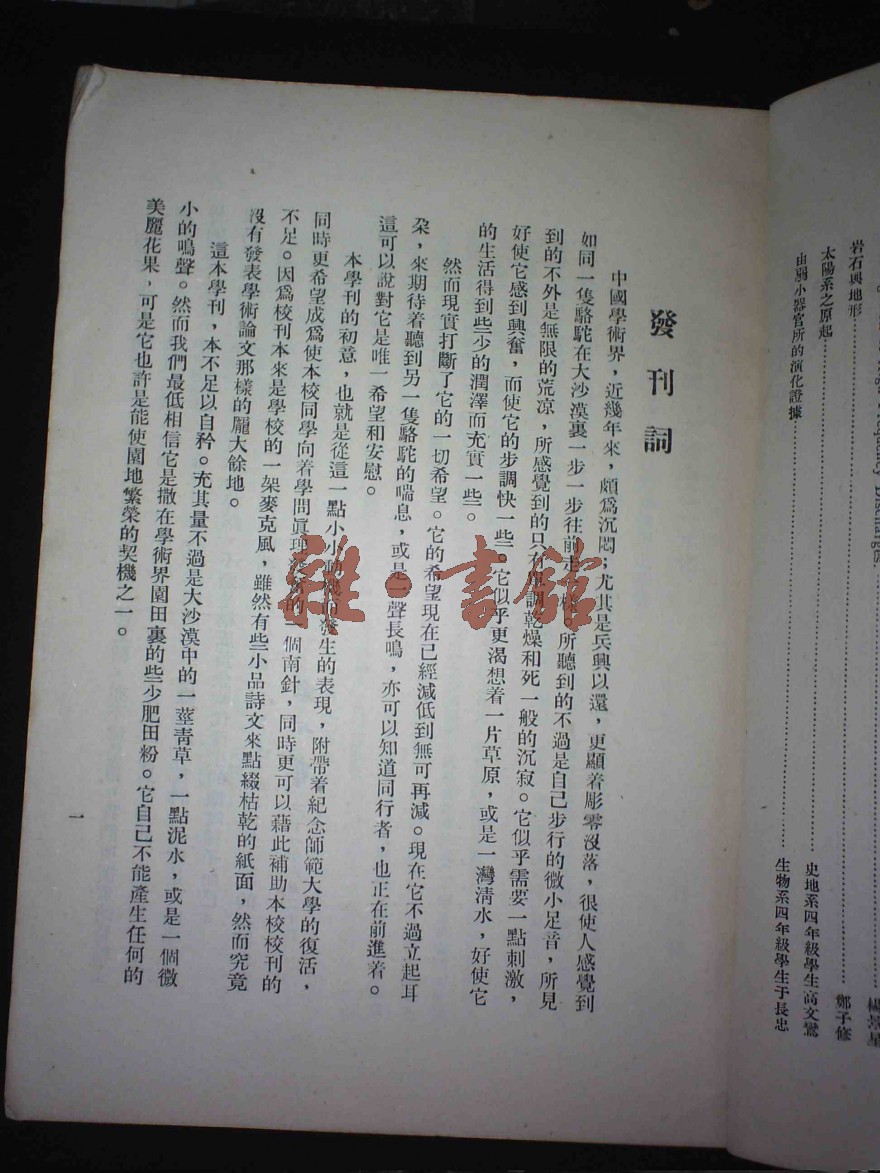 岩石與地形……楊景星
太陽系之原起……鄭子修
史地系四年級學生高文鸞
由弱小器官所的演化證據……生物系四年級學生于長忠
發刊詞
中國學術界，近幾年來，頗爲沉悶；尤其是兵興以還，更顯着彫零沒落，很使人感覺到
如同一隻駱駝在大沙漠裏一步一步往前走一樣。所聽到的不過是自己步行的微小足音，所見
到的不外是無限的荒凉，所感覺到的只有單調乾燥和死一般的沉寂。它似乎需要一點刺激，
好使它感到興奮，而使它的步調快一些。它似乎更渴想着一片草原，或是一灣淸水，好使它
的生活得到些少的潤澤而充實一些。
然而現實打斷了它的一切希望。它的希望現在已經減低到無可再減。現在它不過立起耳
朶，來期待着聽到另一隻駱駝的喘息，或是一聲長鳴，亦可以知道同行者，也正在前進着。
這可以說對它是唯一希望和安慰。
本學刊的初意，也就是從這一點小小動機而發生的表現，附帶着紀念師範大學的復活，
同時更希望成爲使本校同學向着學問眞理 的一個南針，同時更可以藉此補助本校校刊的
不足。因爲校刊本來是學校的一架麥克風，雖然有些小品詩文來點綴枯乾的紙面，然而究竟
沒有發表學術論文那樣的龎大餘地。
這本學刊，本不足以自矜。充其量不過是大沙漠中的一莖靑草，一點泥水，或是一個微
小的鳴聲。然而我們最低相信它是撒在學術界園田裏的些少肥田粉。它自己不能產生任何的
美麗花果，可是它也許是能使園地繁榮的契機之一。
一
雜·書館